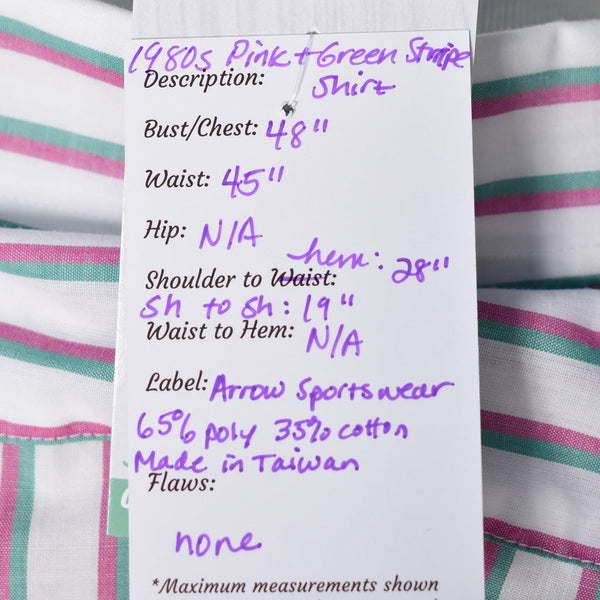 1980s Pink + Green Stripe
Description: Shirt
Bust/Chest: 48"
Waist: 45"
Hip: N/A
hem:
Shoulder to Waist: 28"
Sh to sh: 19"
Waist to Hem: N/A
Label: Arrow Sportswear
65% poly 35% cotton
Made in Taiwan
Flaws:
none
*Maximum measurements shown